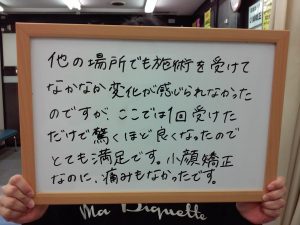 他の場所でも施術を受けて
なかなか変化が感じられなかった
のですが、ここでは1回受けた
だけで驚くほど良くなったので
とても満足です。小顔矯正
なのに、痛みもなかったです。
Ma Briquette